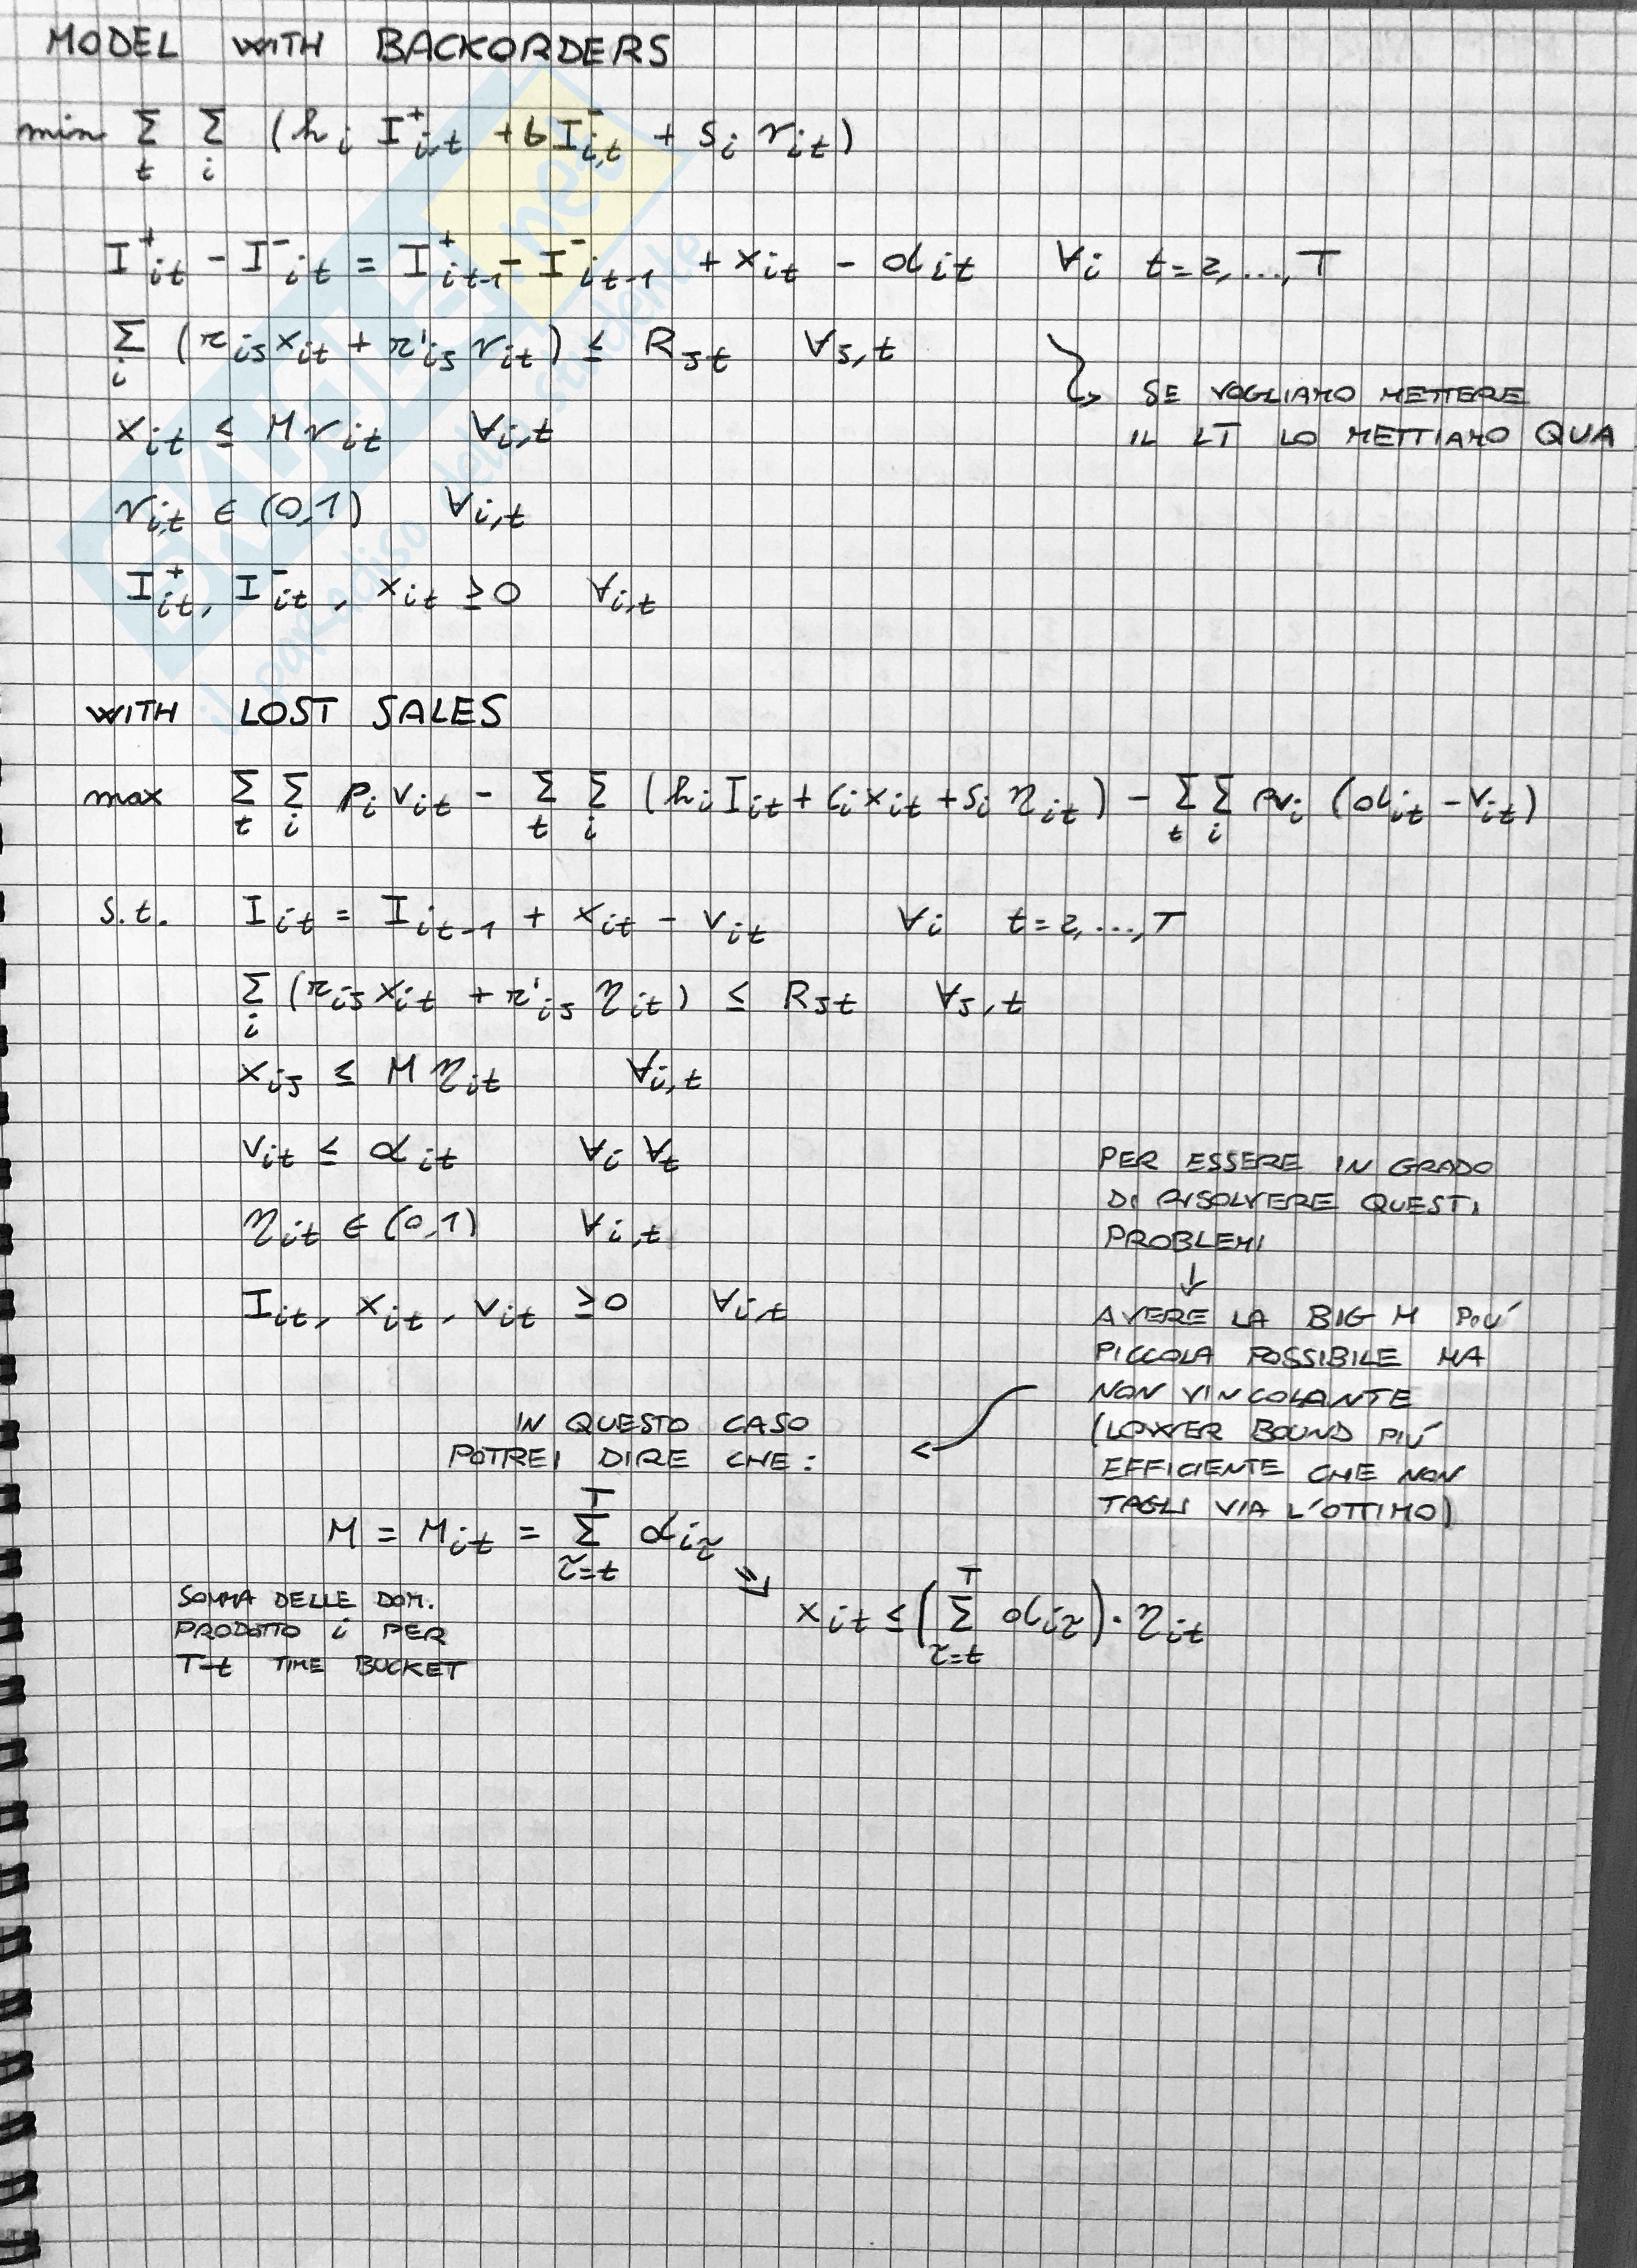 MODEL WITH BACKORDERS
min Σ_t Σ_i (h_i I⁺_i,t + b I⁻_i,t + s_i γ_it)
I⁺_it - I⁻_it = I⁺_it-1 - I⁻_it-1 + x_it - d_it ∀i t=2,...,T
Σ_i (r_is x_it + r'_is γ_it) ≤ R_st ∀s,t
SE VOGLIAMO METTERE
IL LT LO METTIAMO QUA
x_it ≤ M γ_it ∀i,t
γ_i,t ∈ (0,1) ∀i,t
I⁺_it, I⁻_it, x_it ≥0 ∀i,t
WITH LOST SALES
max Σ_t Σ_i p_i v_it - Σ_t Σ_i (h_i I_it + c_i x_it + s_i η_it) - Σ_t Σ_i pv_i (d_it - v_it)
s.t. I_it = I_it-1 + x_it - v_it ∀i t=2,...,T
Σ_i (r_is x_it + r'_is η_it) ≤ R_st ∀s,t
x_is ≤ M η_it ∀i,t
v_it ≤ d_it ∀i ∀t
η_it ∈ (0,1) ∀i,t
I_it, x_it, v_it ≥0 ∀i,t
PER ESSERE IN GRADO
DI RISOLVERE QUESTI
PROBLEMI
↓
AVERE LA BIG M PIÚ
PICCOLA POSSIBILE MA
NON VINCOLANTE
(LOWER BOUND PIÚ
EFFICIENTE CHE NON
TAGLI VIA L'OTTIMO)
IN QUESTO CASO
POTREI DIRE CHE:
M = M_it = Σ_τ=t^T d_iτ
SOMMA DELLE DOM.
PRODOTTO i PER
T-t TIME BUCKET
x_it ≤ (Σ_τ=t^T d_iτ) · η_it
SKUOLA.net
il paradiso dello studente